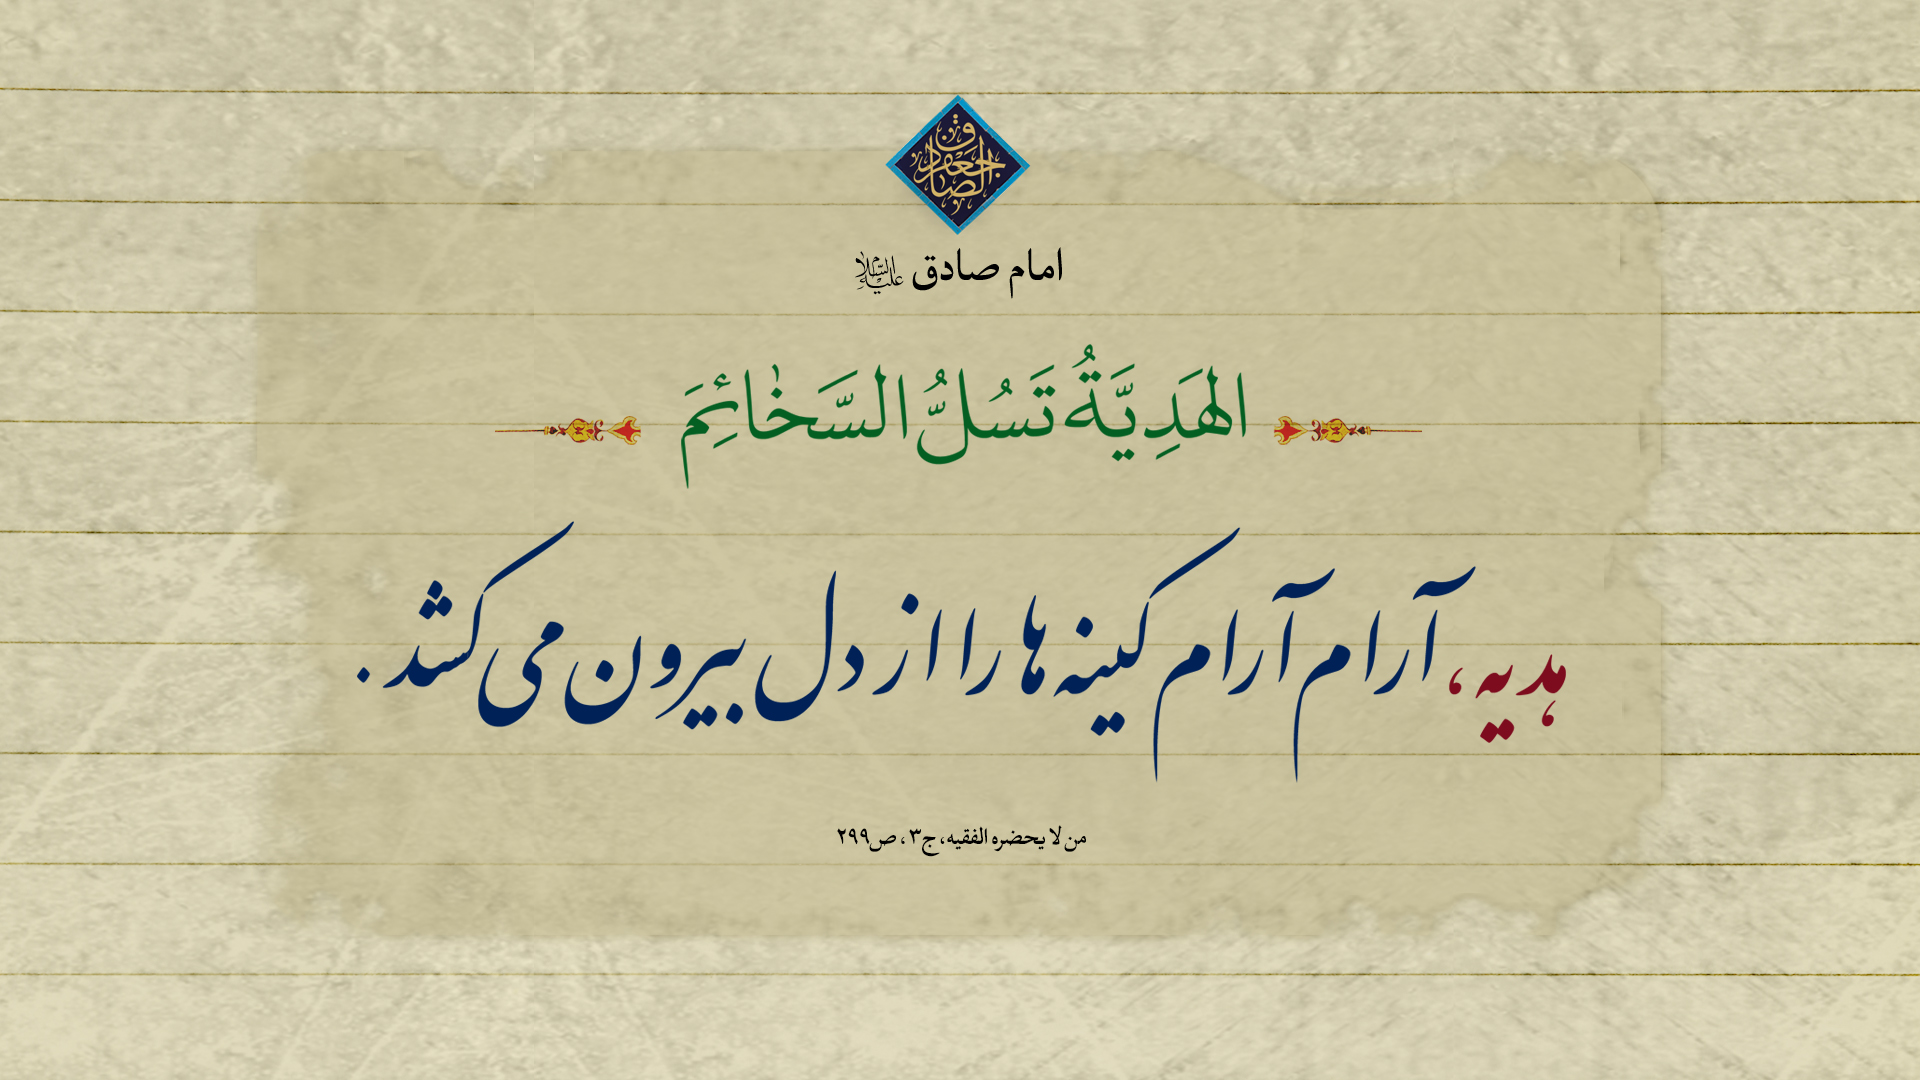 جعفر الصادق
امام صادق علیه‌السلام
الهَدِيَّةُ تَسُلُّ السَّخائِمَ
هدیه، آرام آرام کینه ها را از دل بیرون می کشد.
من لا یحضره الفقیه، ج۳، ص۲۹۹